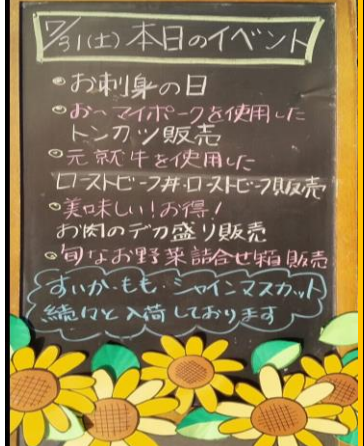 7/31(土)本日のイベント
◎お刺身の日
◎お〜マイポークを使用した
トンカツ販売
◎元就牛を使用した
ローストビーフ丼・ローストビーフ販売
◎美味しい!お得!
お肉のデカ盛り販売
◎旬なお野菜詰合せ箱販売
すいか・もも・シャインマスカット
続々と入荷しております